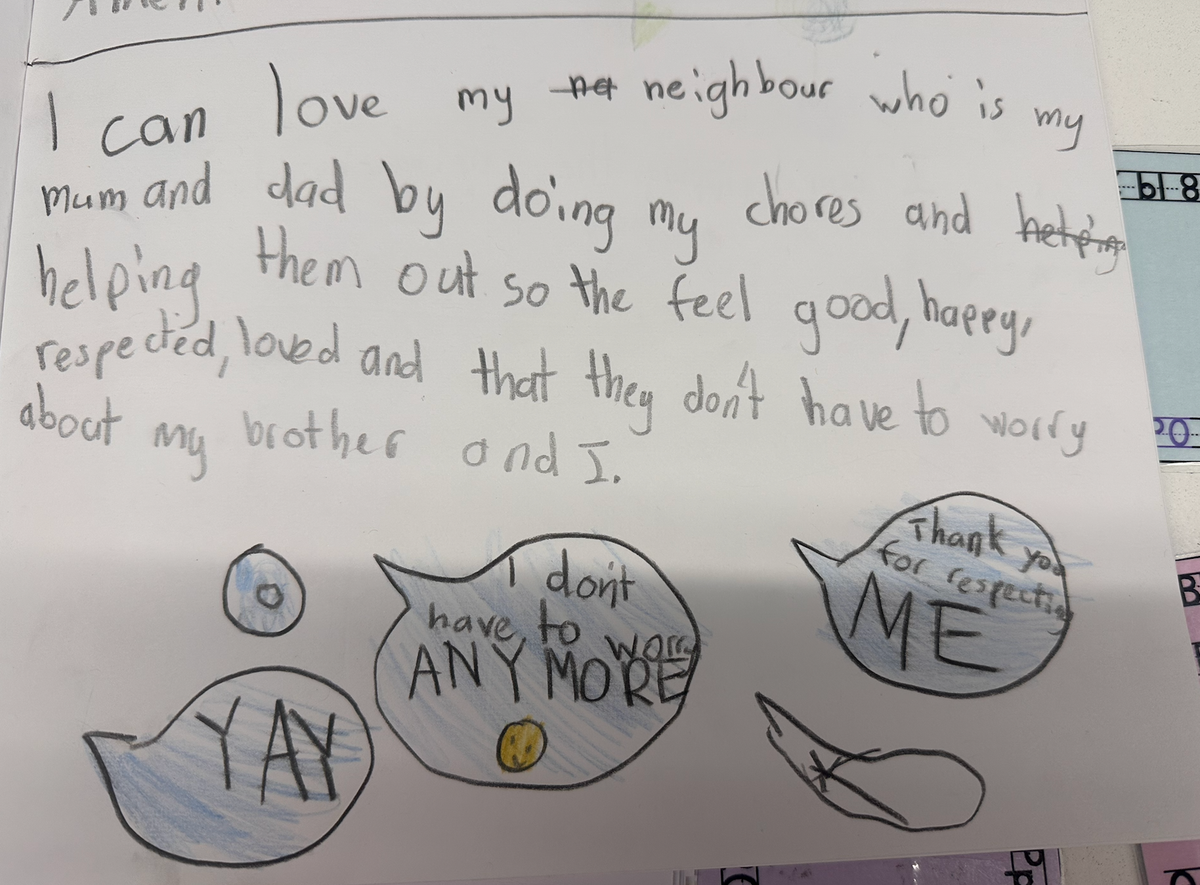 I can love my neighbour who is my
mum and dad by doing my chores and
helping them out so the feel good, happy,
respected, loved and that they don't have to worry
about my brother and I.
I don't
have to worry
ANYMORE
Thank you
for respecting
ME
YAY
61 8
20